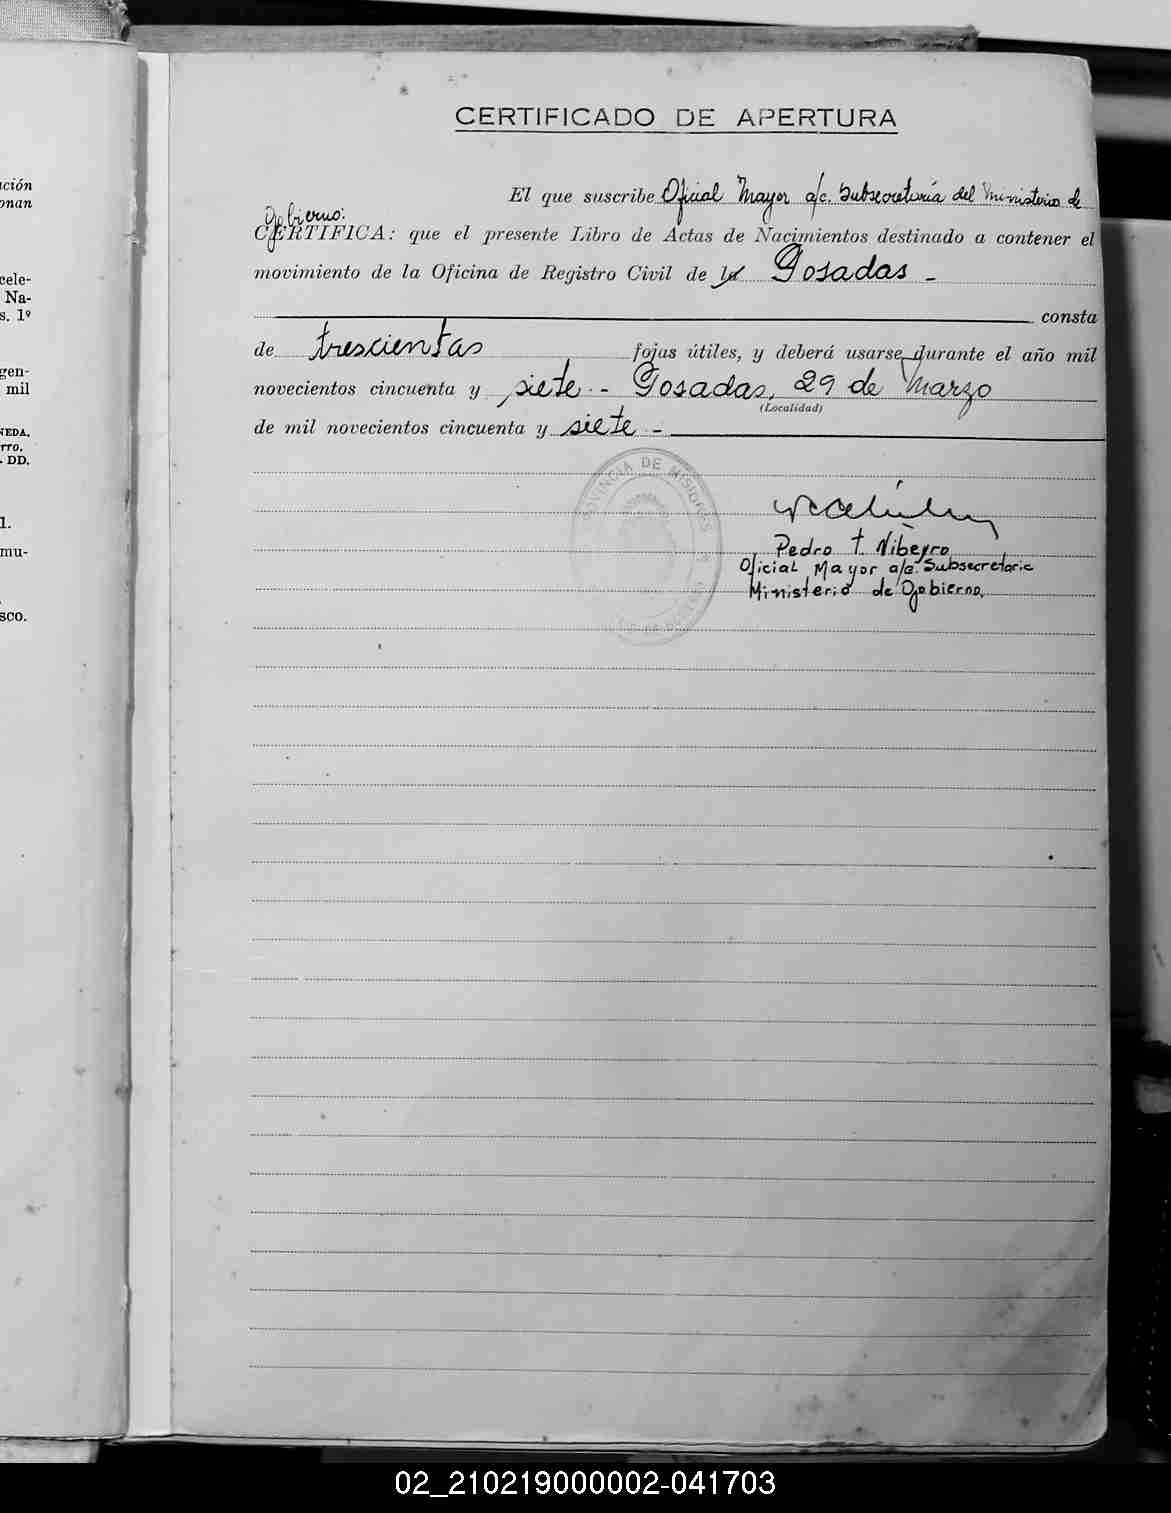 CERTIFICADO DE APERTURA
El que suscribe Oficial Mayor a/c. Subsecretaría del Ministerio de
Gobierno:
CERTIFICA: que el presente Libro de Actas de Nacimientos destinado a contener el
movimiento de la Oficina de Registro Civil de la Posadas -
consta
de trescientas fojas útiles, y deberá usarse durante el año mil
novecientos cincuenta y siete. - Posadas, 29 de Marzo
(Localidad)
de mil novecientos cincuenta y siete -
PROVINCIA DE MISIONES
Pedro T. Ribeyro
Oficial Mayor a/c. Subsecretaria
Ministerio de Gobierno.
ción
onan
cele-
Na-
s. 1º
gen-
mil
NEDA.
rro.
. DD.
1.
mu-
sco.
02_210219000002-041703